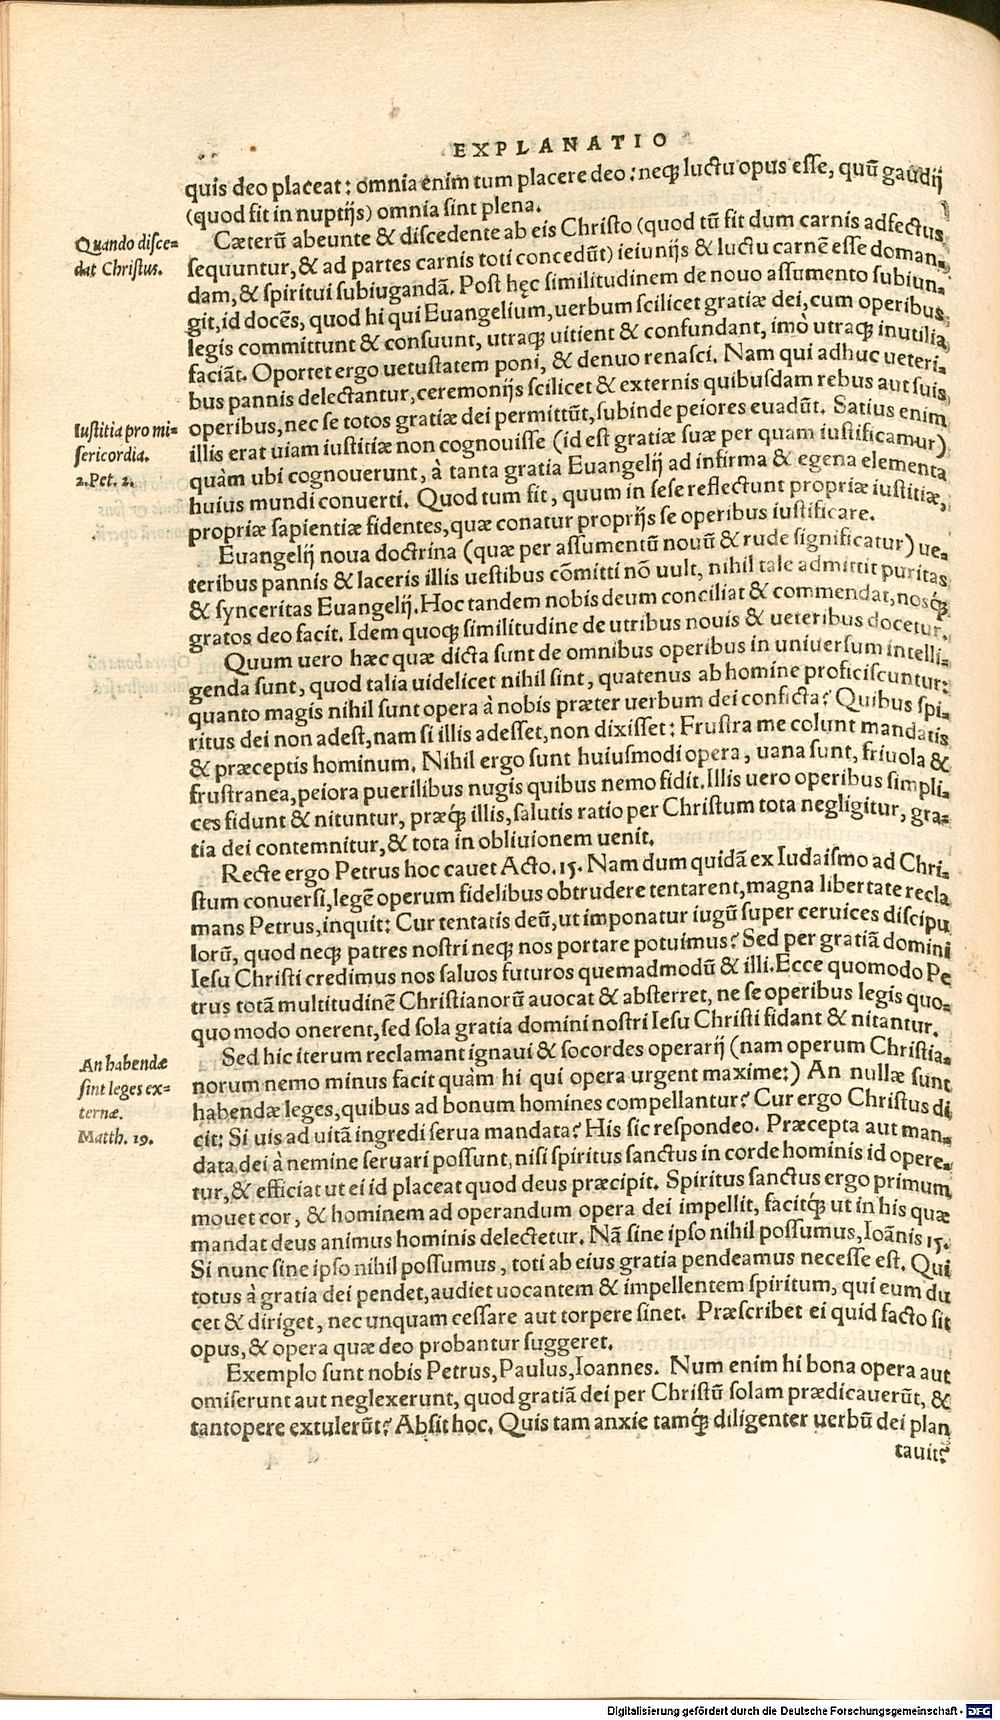 EXPLANATIO
quis deo placeat: omnia enim tum placere deo: neqꝫ luctu opus esse, quũ gaudij
(quod fit in nuptijs) omnia sint plena.
Quando disce=
dat Christus.
Cæterũ abeunte & discedente ab eis Christo (quod tũ fit dum carnis adfectus
sequuntur, & ad partes carnis toti concedũt) ieiunijs & luctu carnẽ esse doman=
dam, & spiritui subiugandã. Post hęc similitudinem de nouo assumento subiun=
git, id docẽs, quod hi qui Euangelium, uerbum scilicet gratiæ dei, cum operibus
legis committunt & consuunt, utraqꝫ uitient & confundant, imò utraqꝫ inutilia
faciãt. Oportet ergo uetustatem poni, & denuo renasci. Nam qui adhuc ueteri=
bus pannis delectantur, ceremonijs scilicet & externis quibusdam rebus aut suis
operibus, nec se totos gratiæ dei permittũt, subinde peiores euadũt. Satius enim
Iustitia pro mi=
sericordia.
2. Pet. 2.
illis erat uiam iustitiæ non cognouisse (id est gratiæ suæ per quam iustificamur)
quàm ubi cognouerunt, à tanta gratia Euangelij ad infirma & egena elementa
huius mundi conuerti. Quod tum fit, quum in sese reflectunt propriæ iustitiæ,
propriæ sapientiæ fidentes, quæ conatur proprijs se operibus iustificare.
Euangelij noua doctrina (quæ per assumentũ nouũ & rude significatur) ue=
teribus pannis & laceris illis uestibus cõmitti nõ uult, nihil tale admittit puritas
& synceritas Euangelij. Hoc tandem nobis deum conciliat & commendat, nosqꝫ
gratos deo facit. Idem quoqꝫ similitudine de utribus nouis & ueteribus docetur.
Quum uero hæc quæ dicta sunt de omnibus operibus in uniuersum intelli=
genda sunt, quod talia uidelicet nihil sint, quatenus ab homine proficiscuntur:
quanto magis nihil sunt opera à nobis præter uerbum dei conficta? Quibus spi=
ritus dei non adest, nam si illis adesset, non dixisset: Frustra me colunt mandatis
& præceptis hominum. Nihil ergo sunt huiusmodi opera, uana sunt, friuola &
frustranea, peiora puerilibus nugis quibus nemo fidit. Illis uero operibus simpli=
ces fidunt & nituntur, præqꝫ illis, salutis ratio per Christum tota negligitur, gra=
tia dei contemnitur, & tota in obliuionem uenit.
Recte ergo Petrus hoc cauet Acto. 15. Nam dum quidã ex Iudaismo ad Chri=
stum conuersi, legẽ operum fidelibus obtrudere tentarent, magna libertate recla
mans Petrus, inquit: Cur tentatis deũ, ut imponatur iugũ super ceruices discipu
lorũ, quod neqꝫ patres nostri neqꝫ nos portare potuimus? Sed per gratiã domini
Iesu Christi credimus nos saluos futuros quemadmodũ & illi. Ecce quomodo Pe
trus totã multitudinẽ Christianorũ auocat & absterret, ne se operibus legis quo=
quo modo onerent, sed sola gratia domini nostri Iesu Christi fidant & nitantur.
An habendæ
sint leges ex=
ternæ.
Matth. 19.
Sed hic iterum reclamant ignaui & socordes operarij (nam operum Christia=
norum nemo minus facit quàm hi qui opera urgent maxime:) An nullæ sunt
habendæ leges, quibus ad bonum homines compellantur? Cur ergo Christus di
cit: Si uis ad uitã ingredi serua mandata? His sic respondeo. Præcepta aut man=
data dei à nemine seruari possunt, nisi spiritus sanctus in corde hominis id opere=
tur, & efficiat ut ei id placeat quod deus præcipit. Spiritus sanctus ergo primum
mouet cor, & hominem ad operandum opera dei impellit, facitqꝫ ut in his quæ
mandat deus animus hominis delectetur. Nã sine ipso nihil possumus, Ioãnis 15.
Si nunc sine ipso nihil possumus, toti ab eius gratia pendeamus necesse est. Qui
totus à gratia dei pendet, audiet uocantem & impellentem spiritum, qui eum du
cet & diriget, nec unquam cessare aut torpere sinet. Præscribet ei quid facto sit
opus, & opera quæ deo probantur suggeret.
Exemplo sunt nobis Petrus, Paulus, Ioannes. Num enim hi bona opera aut
omiserunt aut neglexerunt, quod gratiã dei per Christũ solam prædicauerũt, &
tantopere extulerũt? Absit hoc. Quis tam anxie tamqꝫ diligenter uerbũ dei plan
tauit?
Digitalisierung gefördert durch die Deutsche Forschungsgemeinschaft - DFG